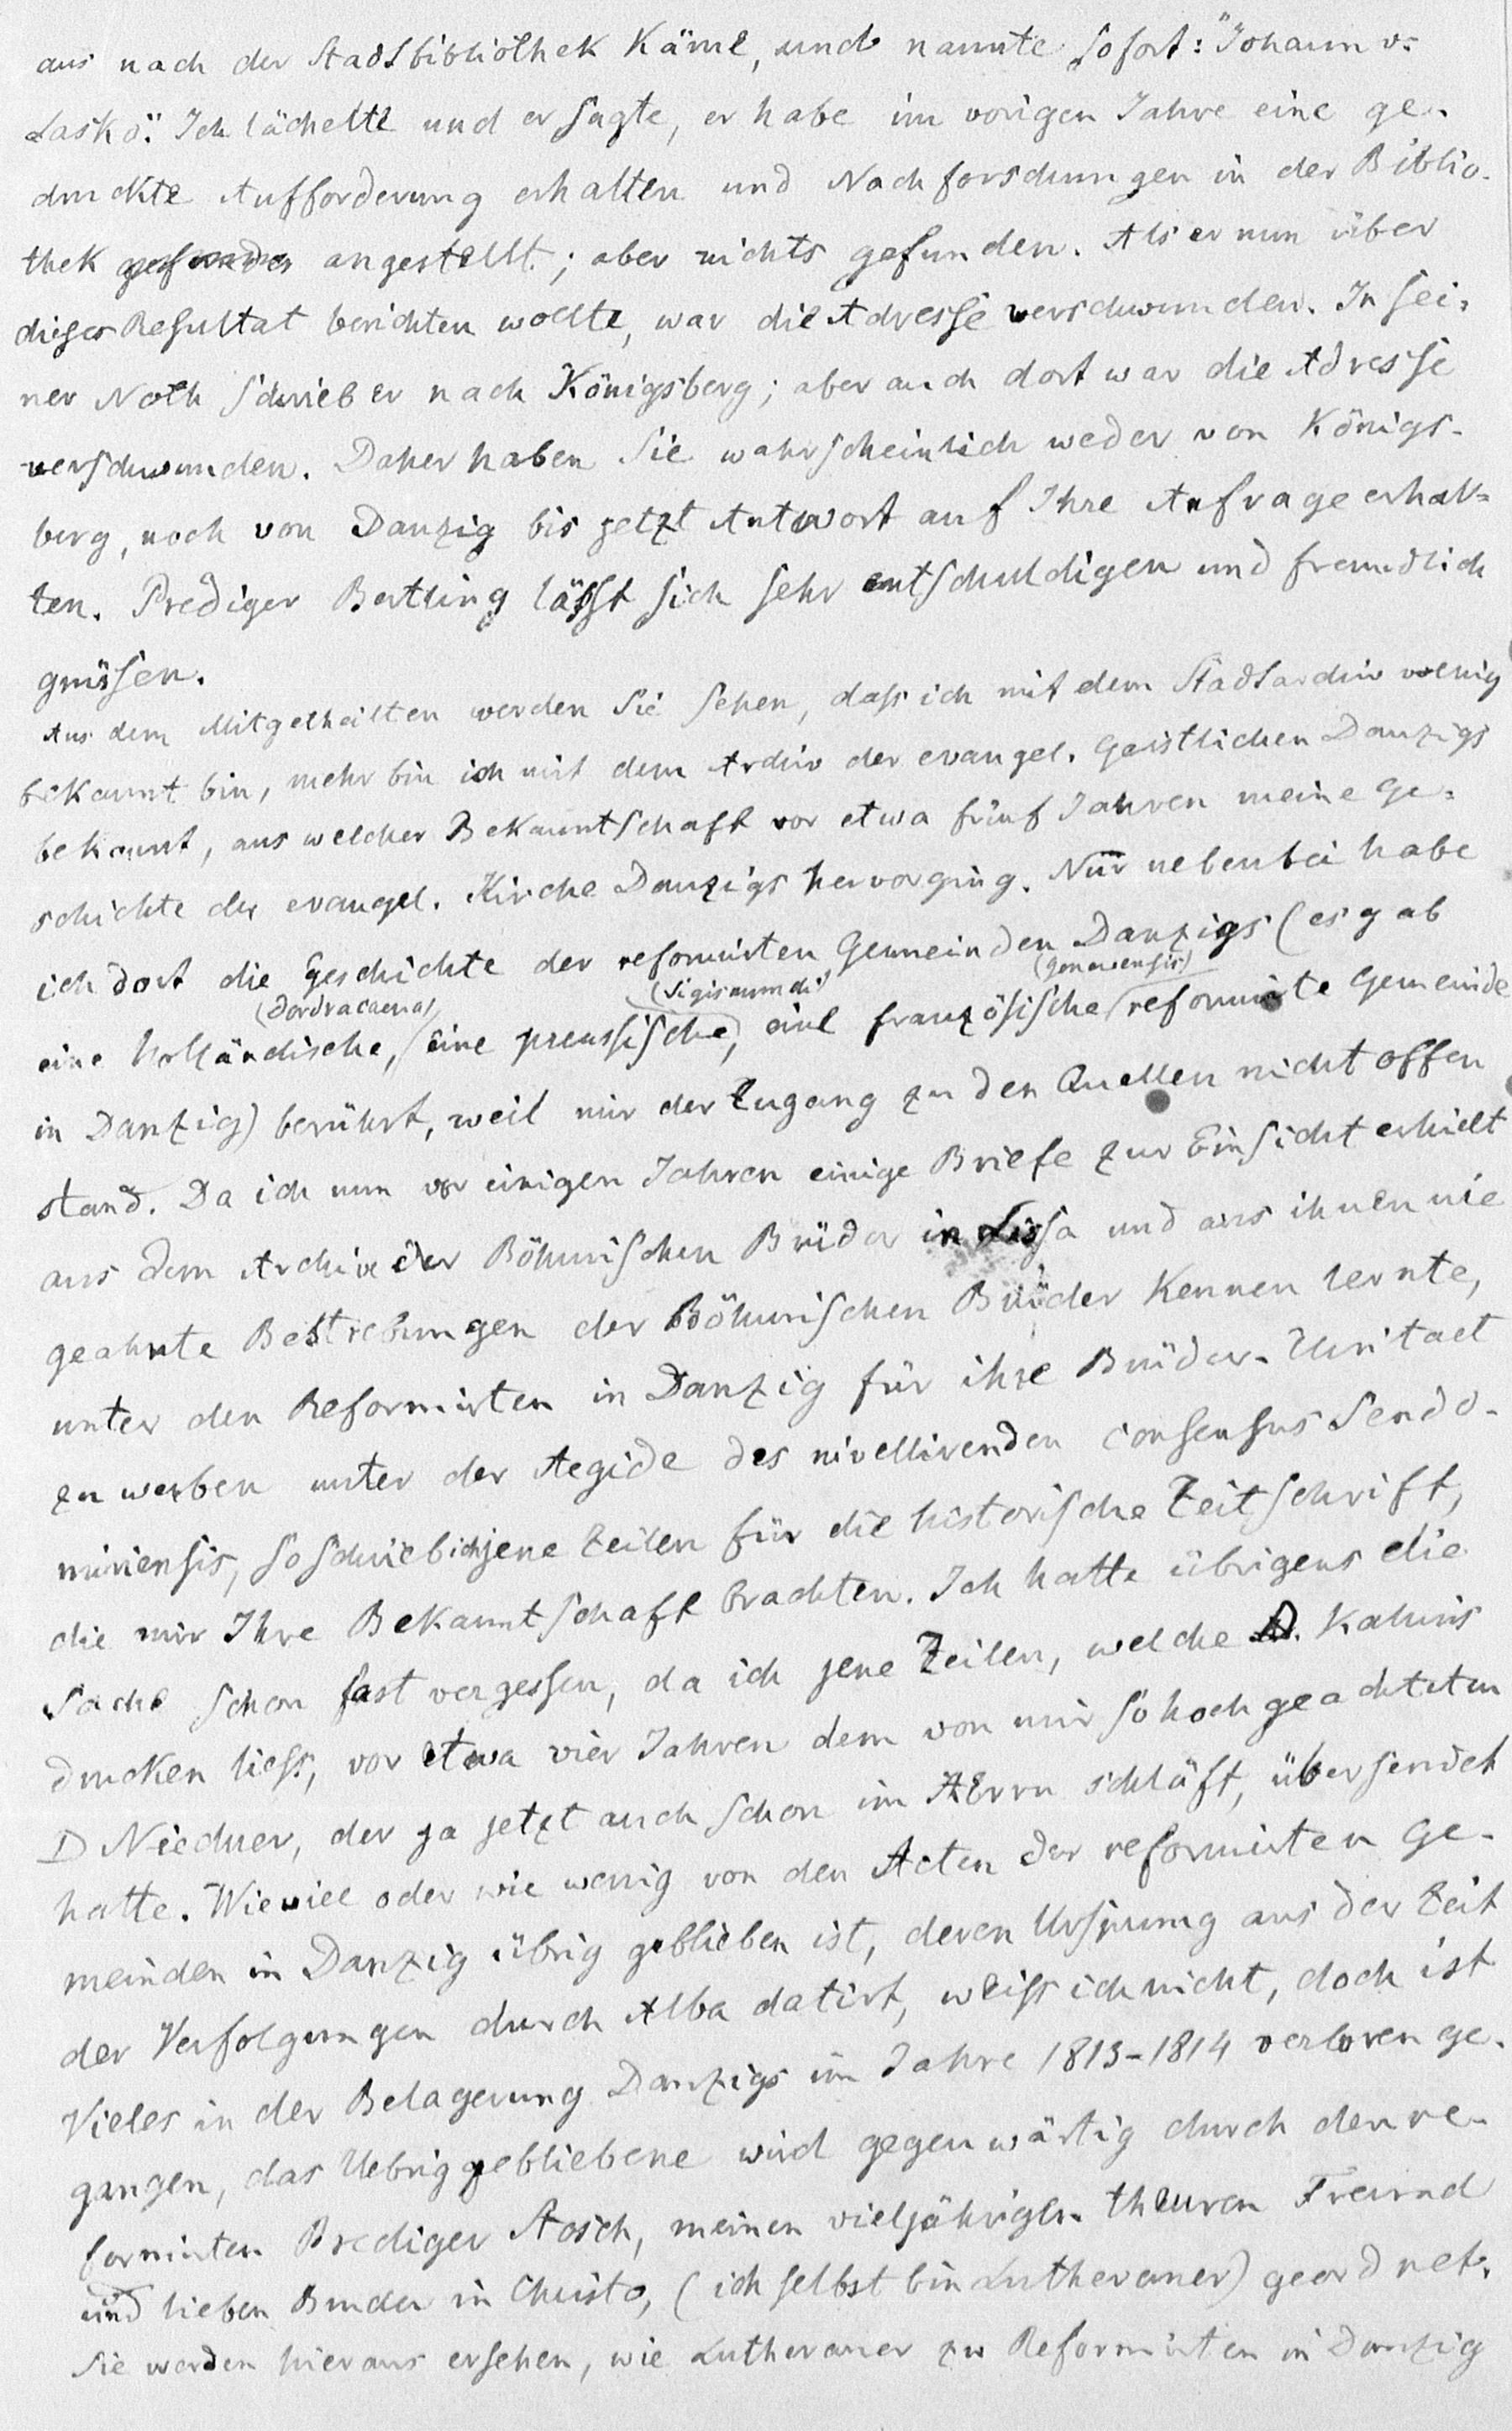 aus nach der Stadtbibliothek käme, und nannte sofort: "Johann v.
Lasko." Ich lächelte und er sagte, er habe im vorigen Jahre eine ge-
druckte Aufforderung erhalten und Nachforschungen in der Biblio-
thek angestellt; aber nichts gefunden. Als er nun über
dieses Resultat berichten wollte, war die Adresse verschwunden. In sei-
ner Noth schrieb er nach Königsberg; aber auch dort war die Adresse
verschwunden. Daher haben Sie wahrscheinlich weder von Königs-
berg, noch von Danzig bis jetzt Antwort auf Ihre Anfrage erhal-
ten. Prediger Bertling lässt sich sehr entschuldigen und freundlich
grüssen.
Aus dem Mitgetheilten werden Sie sehen, dass ich mit dem Stadtarchiv wenig
bekannt bin, mehr bin ich mit dem Archiv der evangel. Geistlichen Danzigs
bekannt, aus welcher Bekanntschaft vor etwa fünf Jahren meine Ge-
schichte der evangel. Kirche Danzigs hervorging. Nur nebenbei habe
ich dort die Geschichte der reformirten Gemeinden Danzigs (es gab
(dordracaena) (Sigismundi) (genevensis)
eine holländische, eine preussische, eine französische reformirte Gemeinde
in Danzig) berührt, weil mir der Zugang zu den Quellen nicht offen
stand. Da ich nun vor einigen Jahren einige Briefe zur Einsicht erhielt
aus dem Archive der Böhmischen Brüder in Lissa und aus ihnen nie
geahnte Bestrebungen der Böhmischen Brüder kennen lernte,
unter den Reformirten in Danzig für ihre Brüder-Unitaet
zu werben unter der Aegide des nivellirenden consensus Sendo-
miriensis, so schrieb ich jene Zeilen für die historische Zeitschrift,
die mir Ihre Bekanntschaft brachten. Ich hatte übrigens die
Sache schon fast vergessen, da ich jene Zeilen, welche D. Kahnis
drucken liess, vor etwa vier Jahren dem von mir so hoch geachteten
D Niedner, der ja jetzt auch schon im HErrn schläft, übersendet
hatte. Wieviel oder wie wenig von den Acten der reformirten Ge-
meinden in Danzig übrig geblieben ist, deren Ursprung aus der Zeit
der Verfolgungen durch Alba datirt, weiss ich nicht, doch ist
Vieles in der Belagerung Danzigs im Jahre 1813-1814 verloren ge-
gangen, das Uebriggebliebene wird gegenwärtig durch den re-
formirten Prediger Stosch, meinen vieljährigen theuren Freund
und lieben Bruder in Christo, (ich selbst bin Lutheraner) geordnet.
Sie werden hieraus ersehen, wie Lutheraner zu Reformirten in Danzig